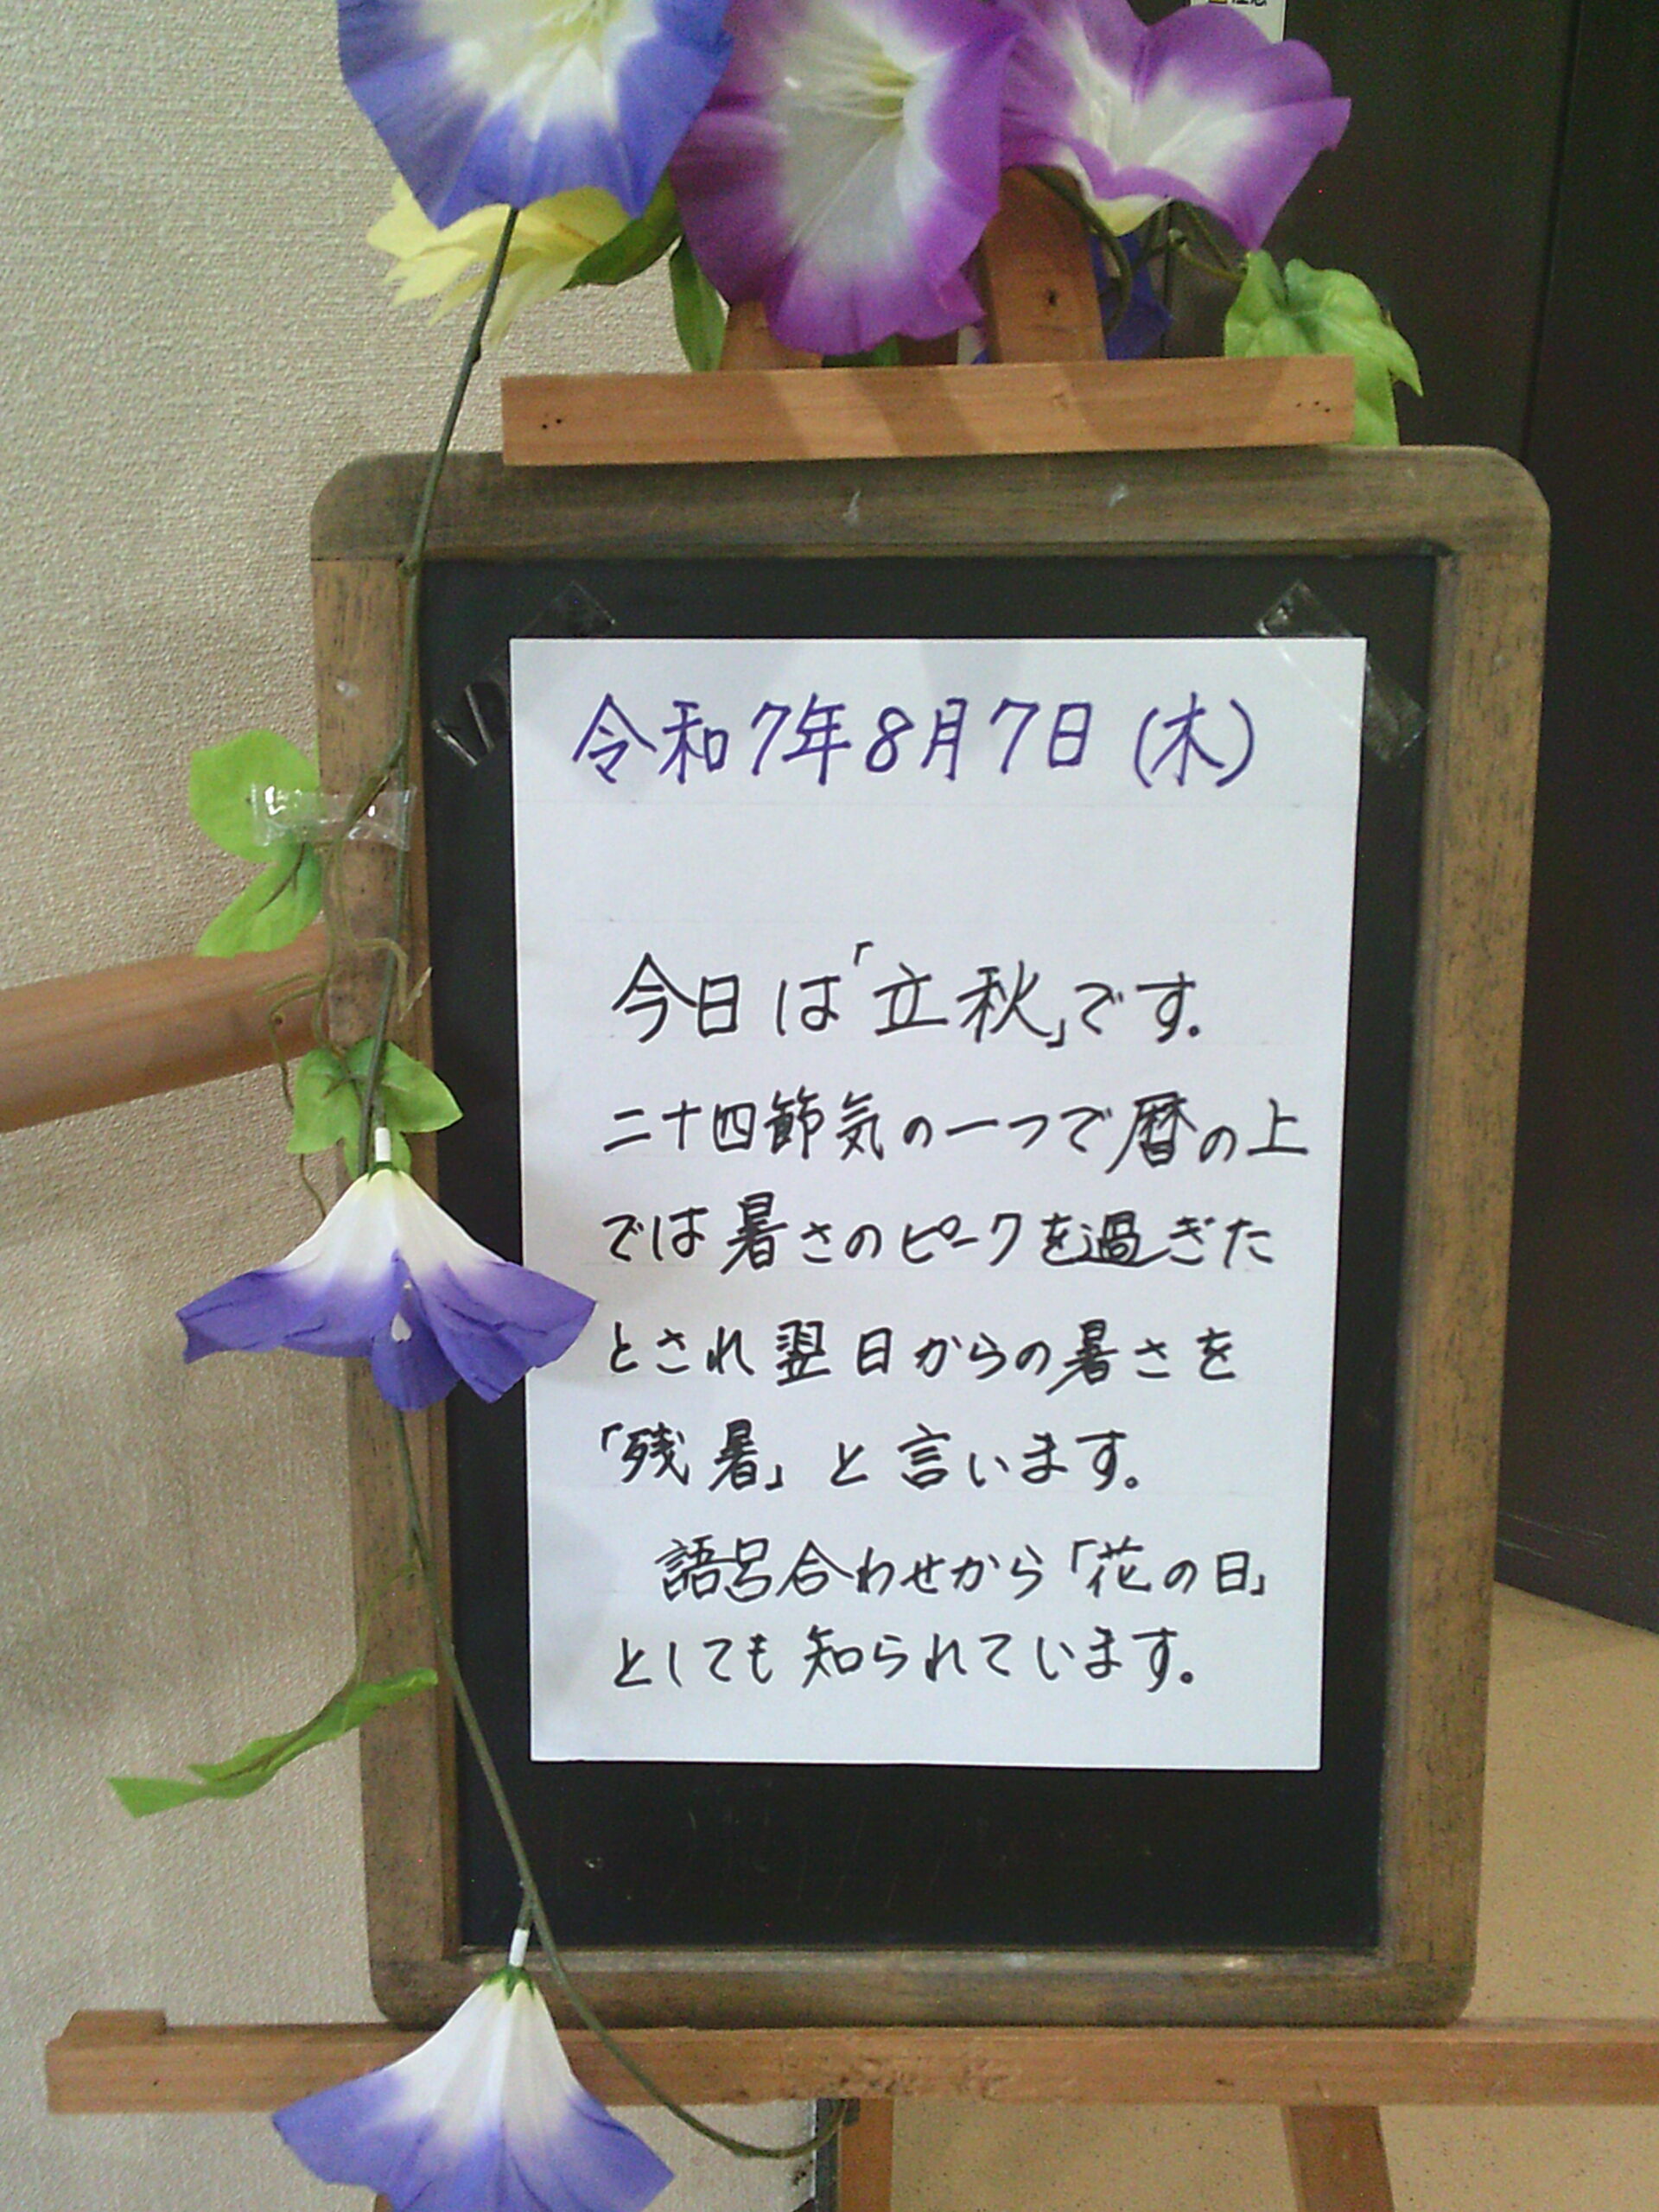 令和7年8月7日(木)
今日は「立秋」です。
二十四節気の一つで暦の上
では暑さのピークを過ぎた
とされ翌日からの暑さを
「残暑」と言います。
語呂合わせから「花の日」
としても知られています。